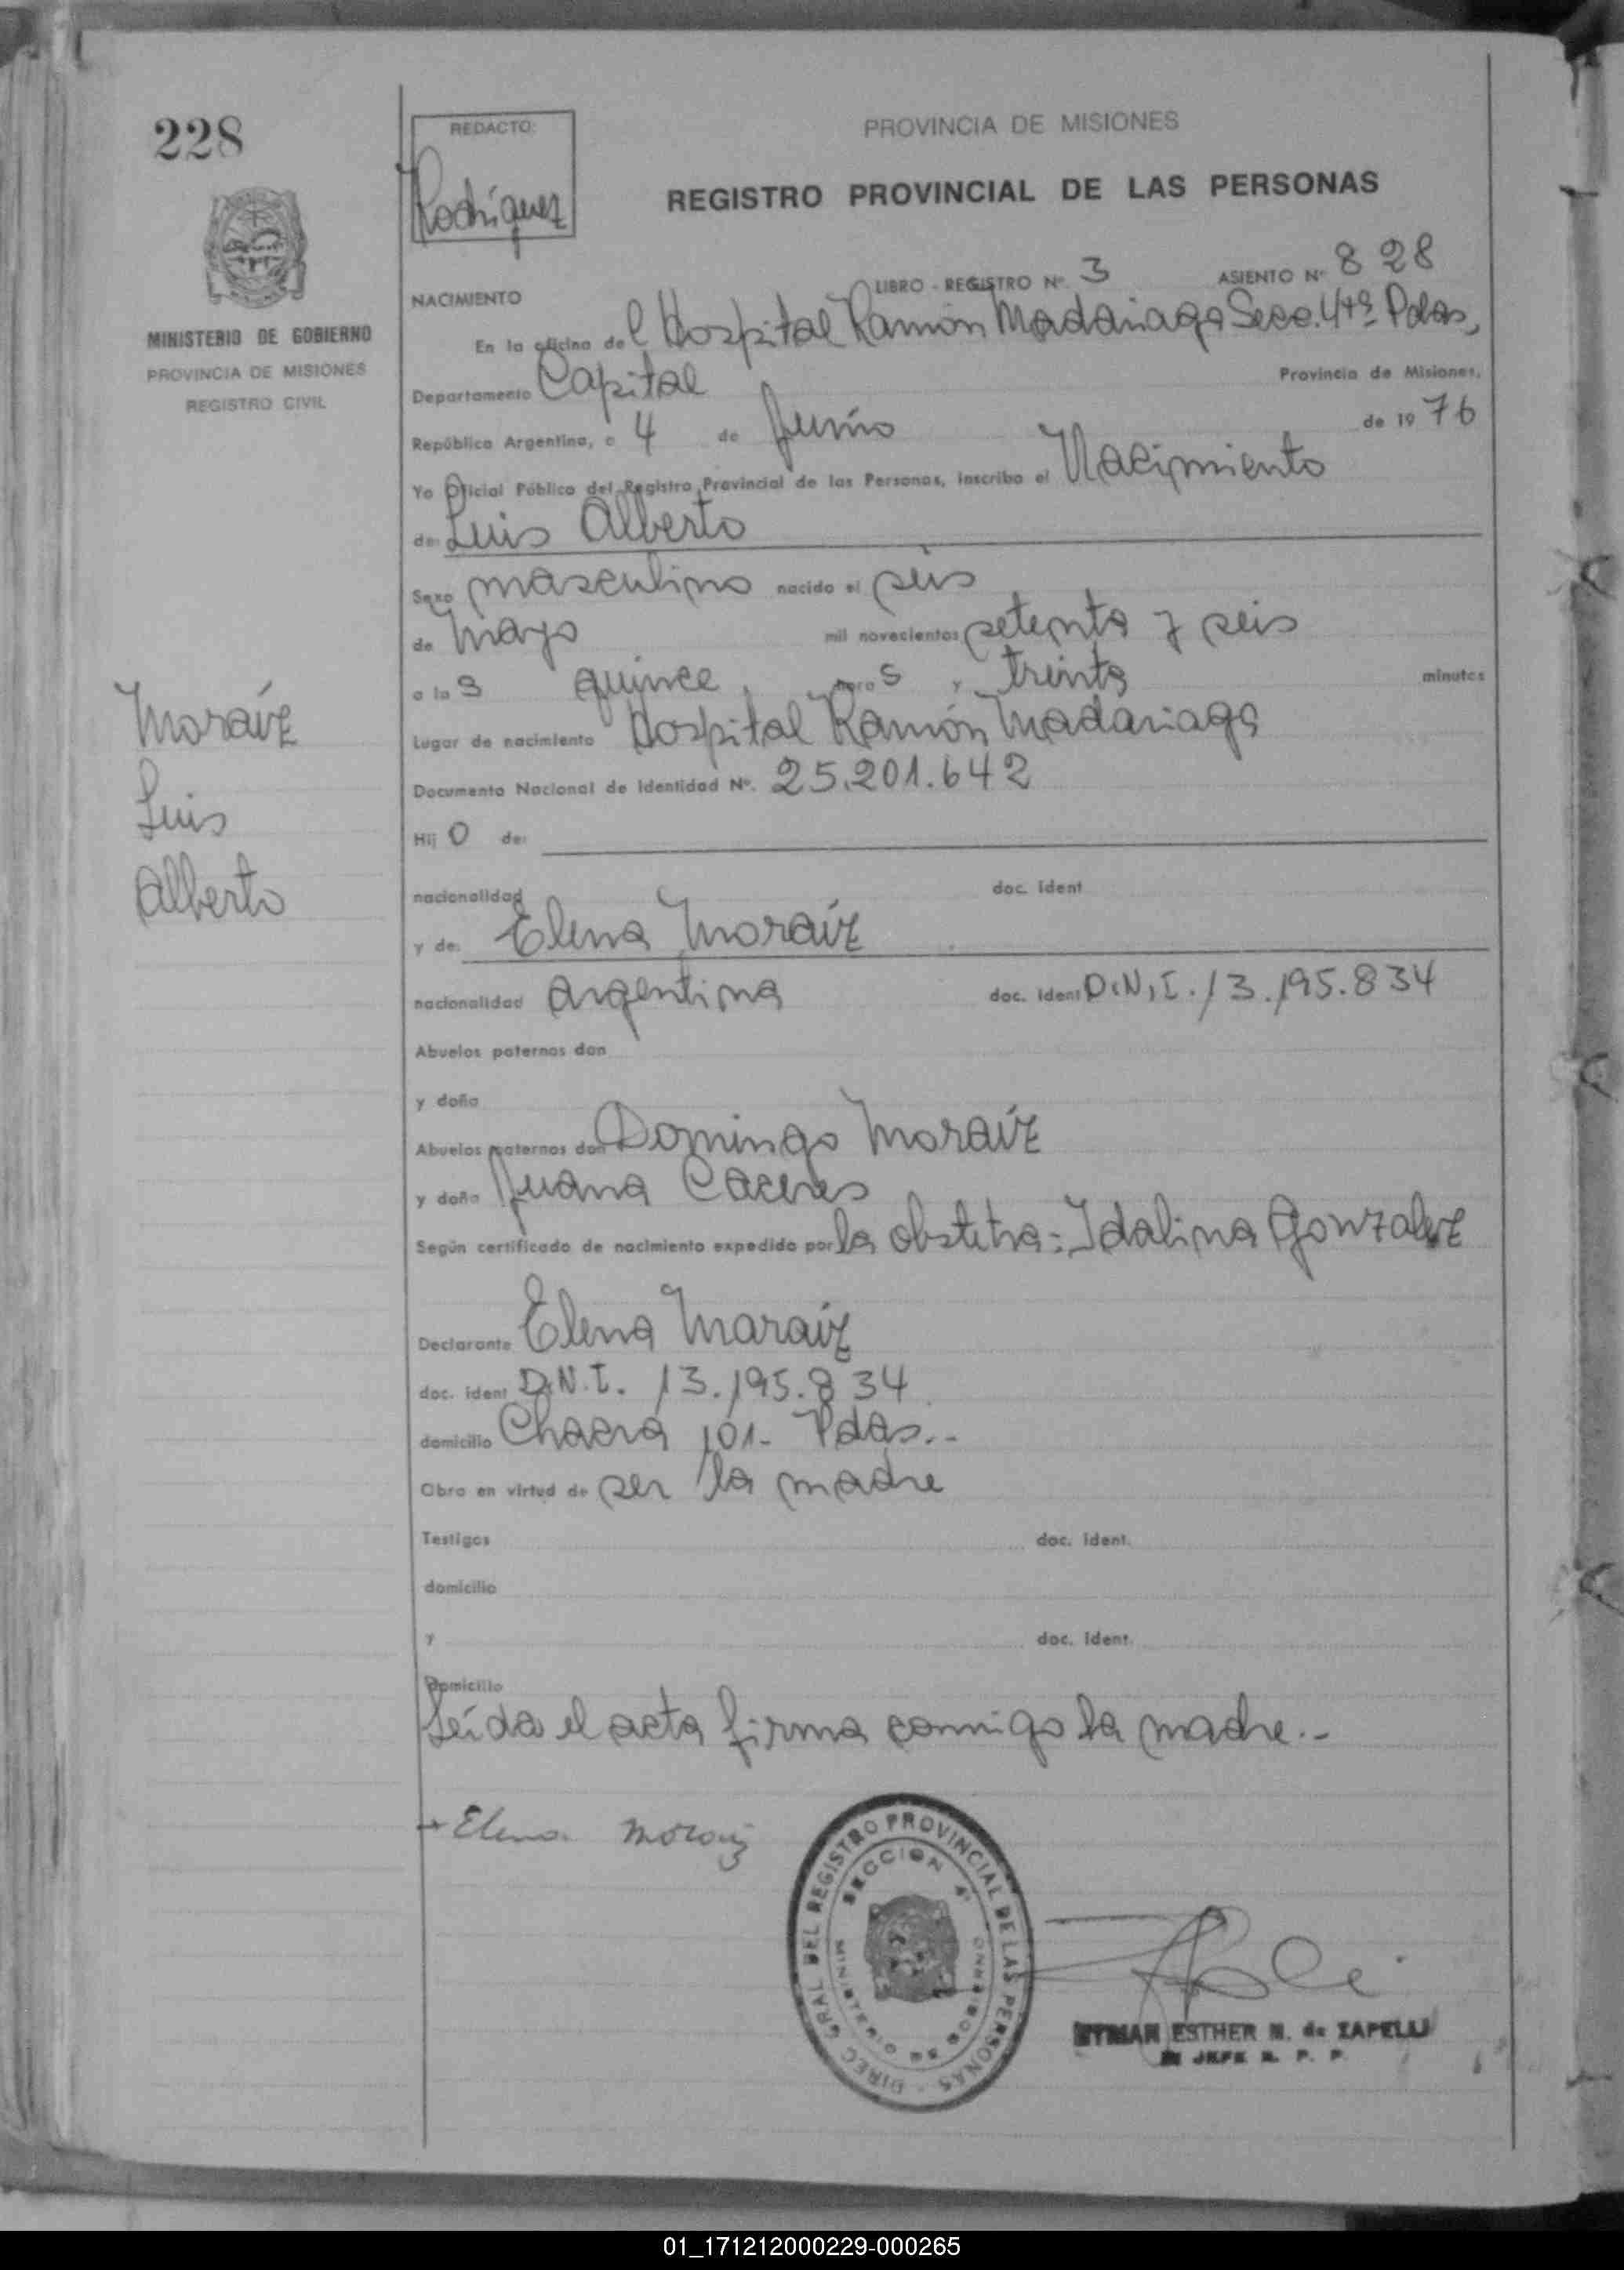 228
REDACTO:
Rodríguez
PROVINCIA DE MISIONES
REGISTRO PROVINCIAL DE LAS PERSONAS
MINISTERIO DE GOBIERNO
PROVINCIA DE MISIONES
REGISTRO CIVIL
NACIMIENTO
LIBRO - REGISTRO Nº. 3 ASIENTO Nº 828
En la oficina del Hospital Ramón Madariaga Secc. 4ta. Pdas,
Departamento Capital Provincia de Misiones,
República Argentina, a 4 de Junio de 1976
Yo Oficial Público del Registro Provincial de las Personas, inscribo el Nacimiento
de: Luis Alberto
Sexo masculino nacido el seis
de Mayo mil novecientos setenta y seis
a las quince horas y treinta minutos
Lugar de nacimiento Hospital Ramón Madariaga
Documento Nacional de Identidad Nº. 25.201.642
Hijo de:
nacionalidad doc. ident
y de: Elena Moraiz
nacionalidad argentina doc. ident D.N.I. 13.195.834
Abuelos paternos don
y doña
Abuelos maternos don Domingo Moraíz
y doña Juana Caceres
Según certificado de nacimiento expedido por la obstetra: Idalina Gonzalez
Declarante Elena Maraiz
doc. ident D.N.I. 13.195.834
domicilio Chacra 101- Pdas.-
Obra en virtud de ser la madre
Testigos doc. ident.
domicilio
y doc. ident.
Domicilio
Leída el acta firma conmigo la madre.-
Moraíz
Luis
Alberto
Elena Moraiz
DIREC. GRAL DEL REGISTRO PROVINCIAL DE LAS PERSONAS
SECCION 4ª
MINISTERIO DE GOBIERNO
MYRIAN ESTHER N. de ZAPELLI
JEFE R. P. P.
01_171212000229-000265